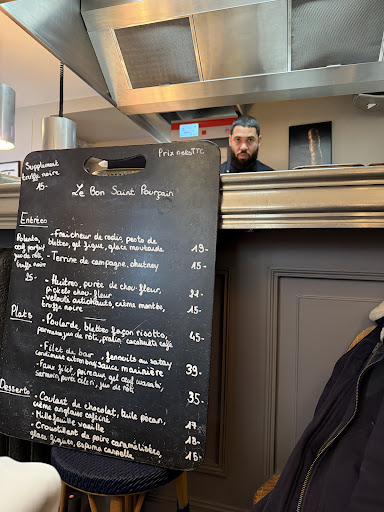 Supplément
truffe noire
15-
Prix nets TTC
Le Bon Saint Pourçain
Entrées
- Fraîcheur de radis, pesto de
blettes, gel figue, glace moutarde 19-
- Terrine de campagne, chutney 15-
Polenta,
œuf parfait
jus de rôti,
truffe noire
25-
- Huîtres, purée de chou-fleur,
pickels chou-fleur 21-
- Velouté artichauts, crème montée,
truffe noire 15-
Plats
- Poularde, blettes façon risotto,
parmesan, jus de rôti, praliné cacahuète café 45-
- Filet de bar, fenouils au satay
condiment citron, sauce marinière 39-
- Faux filet, poireaux, gel œuf wasabi,
purée céleri, jus de rôti 35-
Desserts
- Coulant de chocolat, tuile pécan,
crème anglaise caféiné 17-
- Millefeuille vanille 18-
- Croustillant de poire caramélisées,
glace figues, espuma cannelle 16-